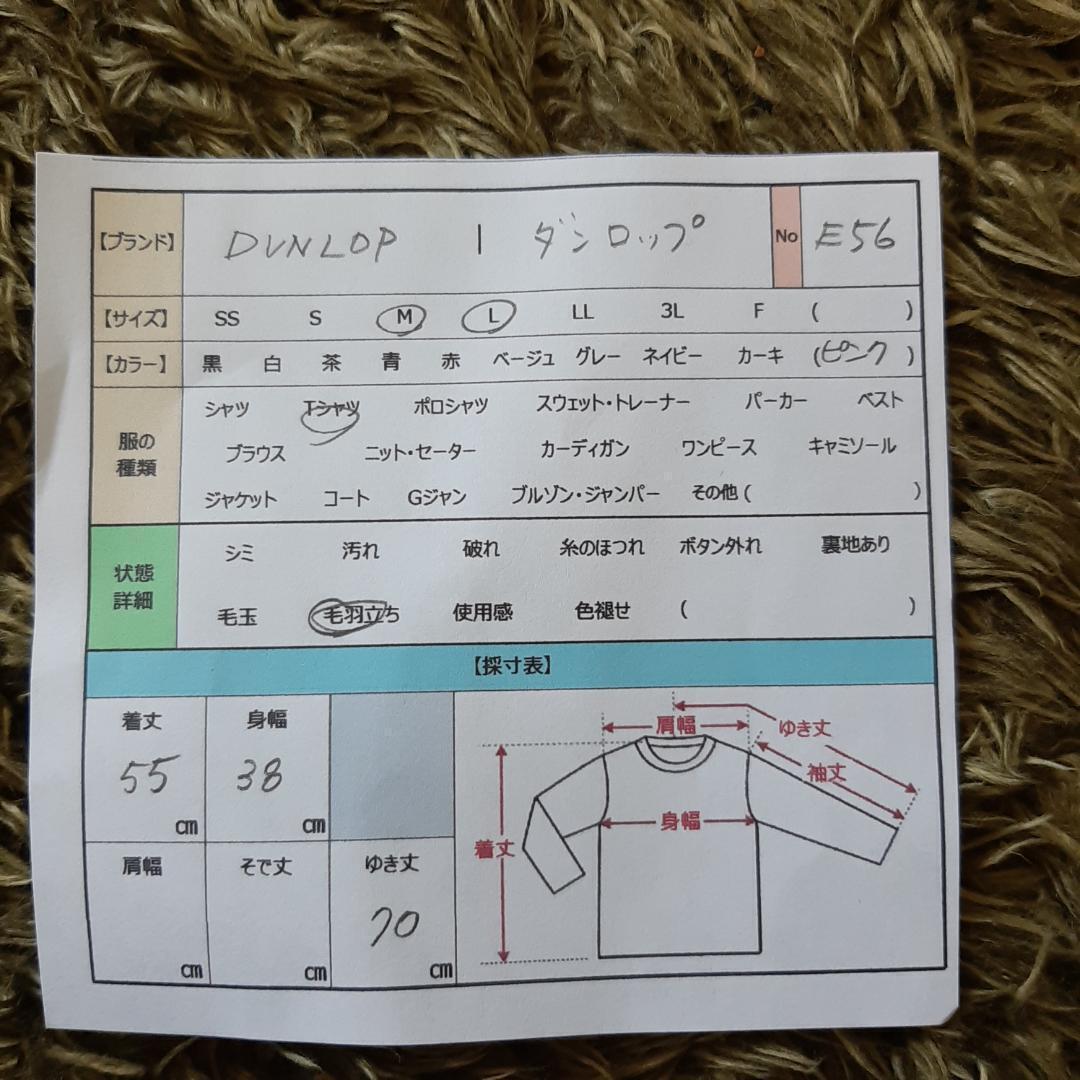 【ブランド】 DUNLOP | ダンロップ No E56
【サイズ】 SS S M L LL 3L F ( )
【カラー】 黒 白 茶 青 赤 ベージュ グレー ネイビー カーキ (ピンク)
服の種類 シャツ Tシャツ ポロシャツ スウェット・トレーナー パーカー ベスト
ブラウス ニット・セーター カーディガン ワンピース キャミソール
ジャケット コート Gジャン ブルゾン・ジャンパー その他 ( )
状態詳細 シミ 汚れ 破れ 糸のほつれ ボタン外れ 裏地あり
毛玉 毛羽立ち 使用感 色褪せ ( )
【採寸表】
着丈 身幅
55 cm 38 cm
肩幅 そで丈 ゆき丈
cm cm 70 cm
肩幅 ゆき丈
袖丈
身幅
着丈